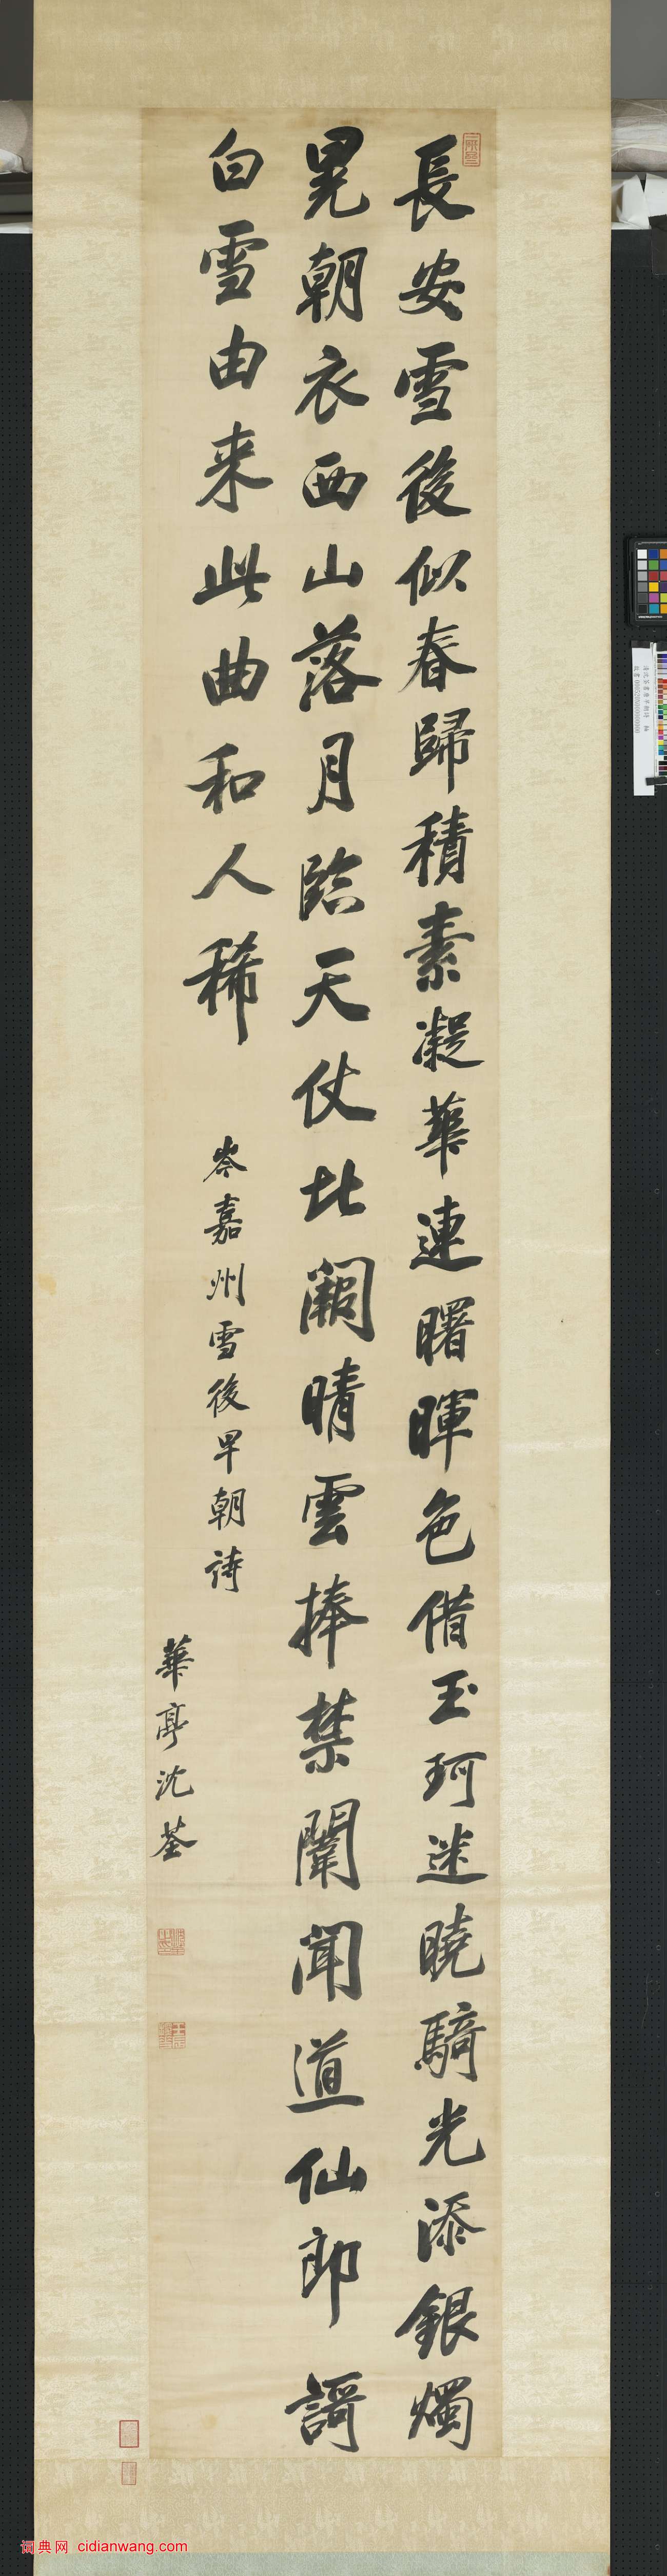 長安雪後似春歸積素凝華連曙暉色借玉珂迷曉騎光添銀燭
晃朝衣西山落月臨天仗北闕晴雲捧禁闈聞道仙郎謌
白雪由来此曲和人稀
岑嘉州雪後早朝詩
華亭沈荃
词典网 cidianwang.com